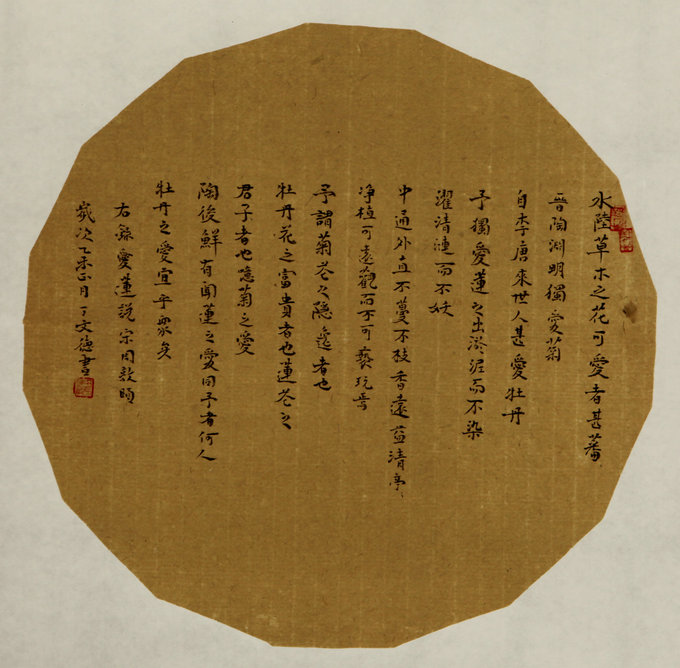 水陸草木之花可愛者甚蕃
晉陶淵明獨愛菊
自李唐來世人甚愛牡丹
予獨愛蓮之出淤泥而不染
濯清漣而不妖
中通外直不蔓不枝香遠益清亭〻
净植可遠觀而不可褻玩焉
予謂菊花之隱逸者也
牡丹花之富貴者也蓮花之
君子者也噫菊之愛
陶後鮮有聞蓮之愛同予者何人
牡丹之愛宜乎眾矣
右錄愛蓮說宗周敦頤
歲次乙未正月丁文德書